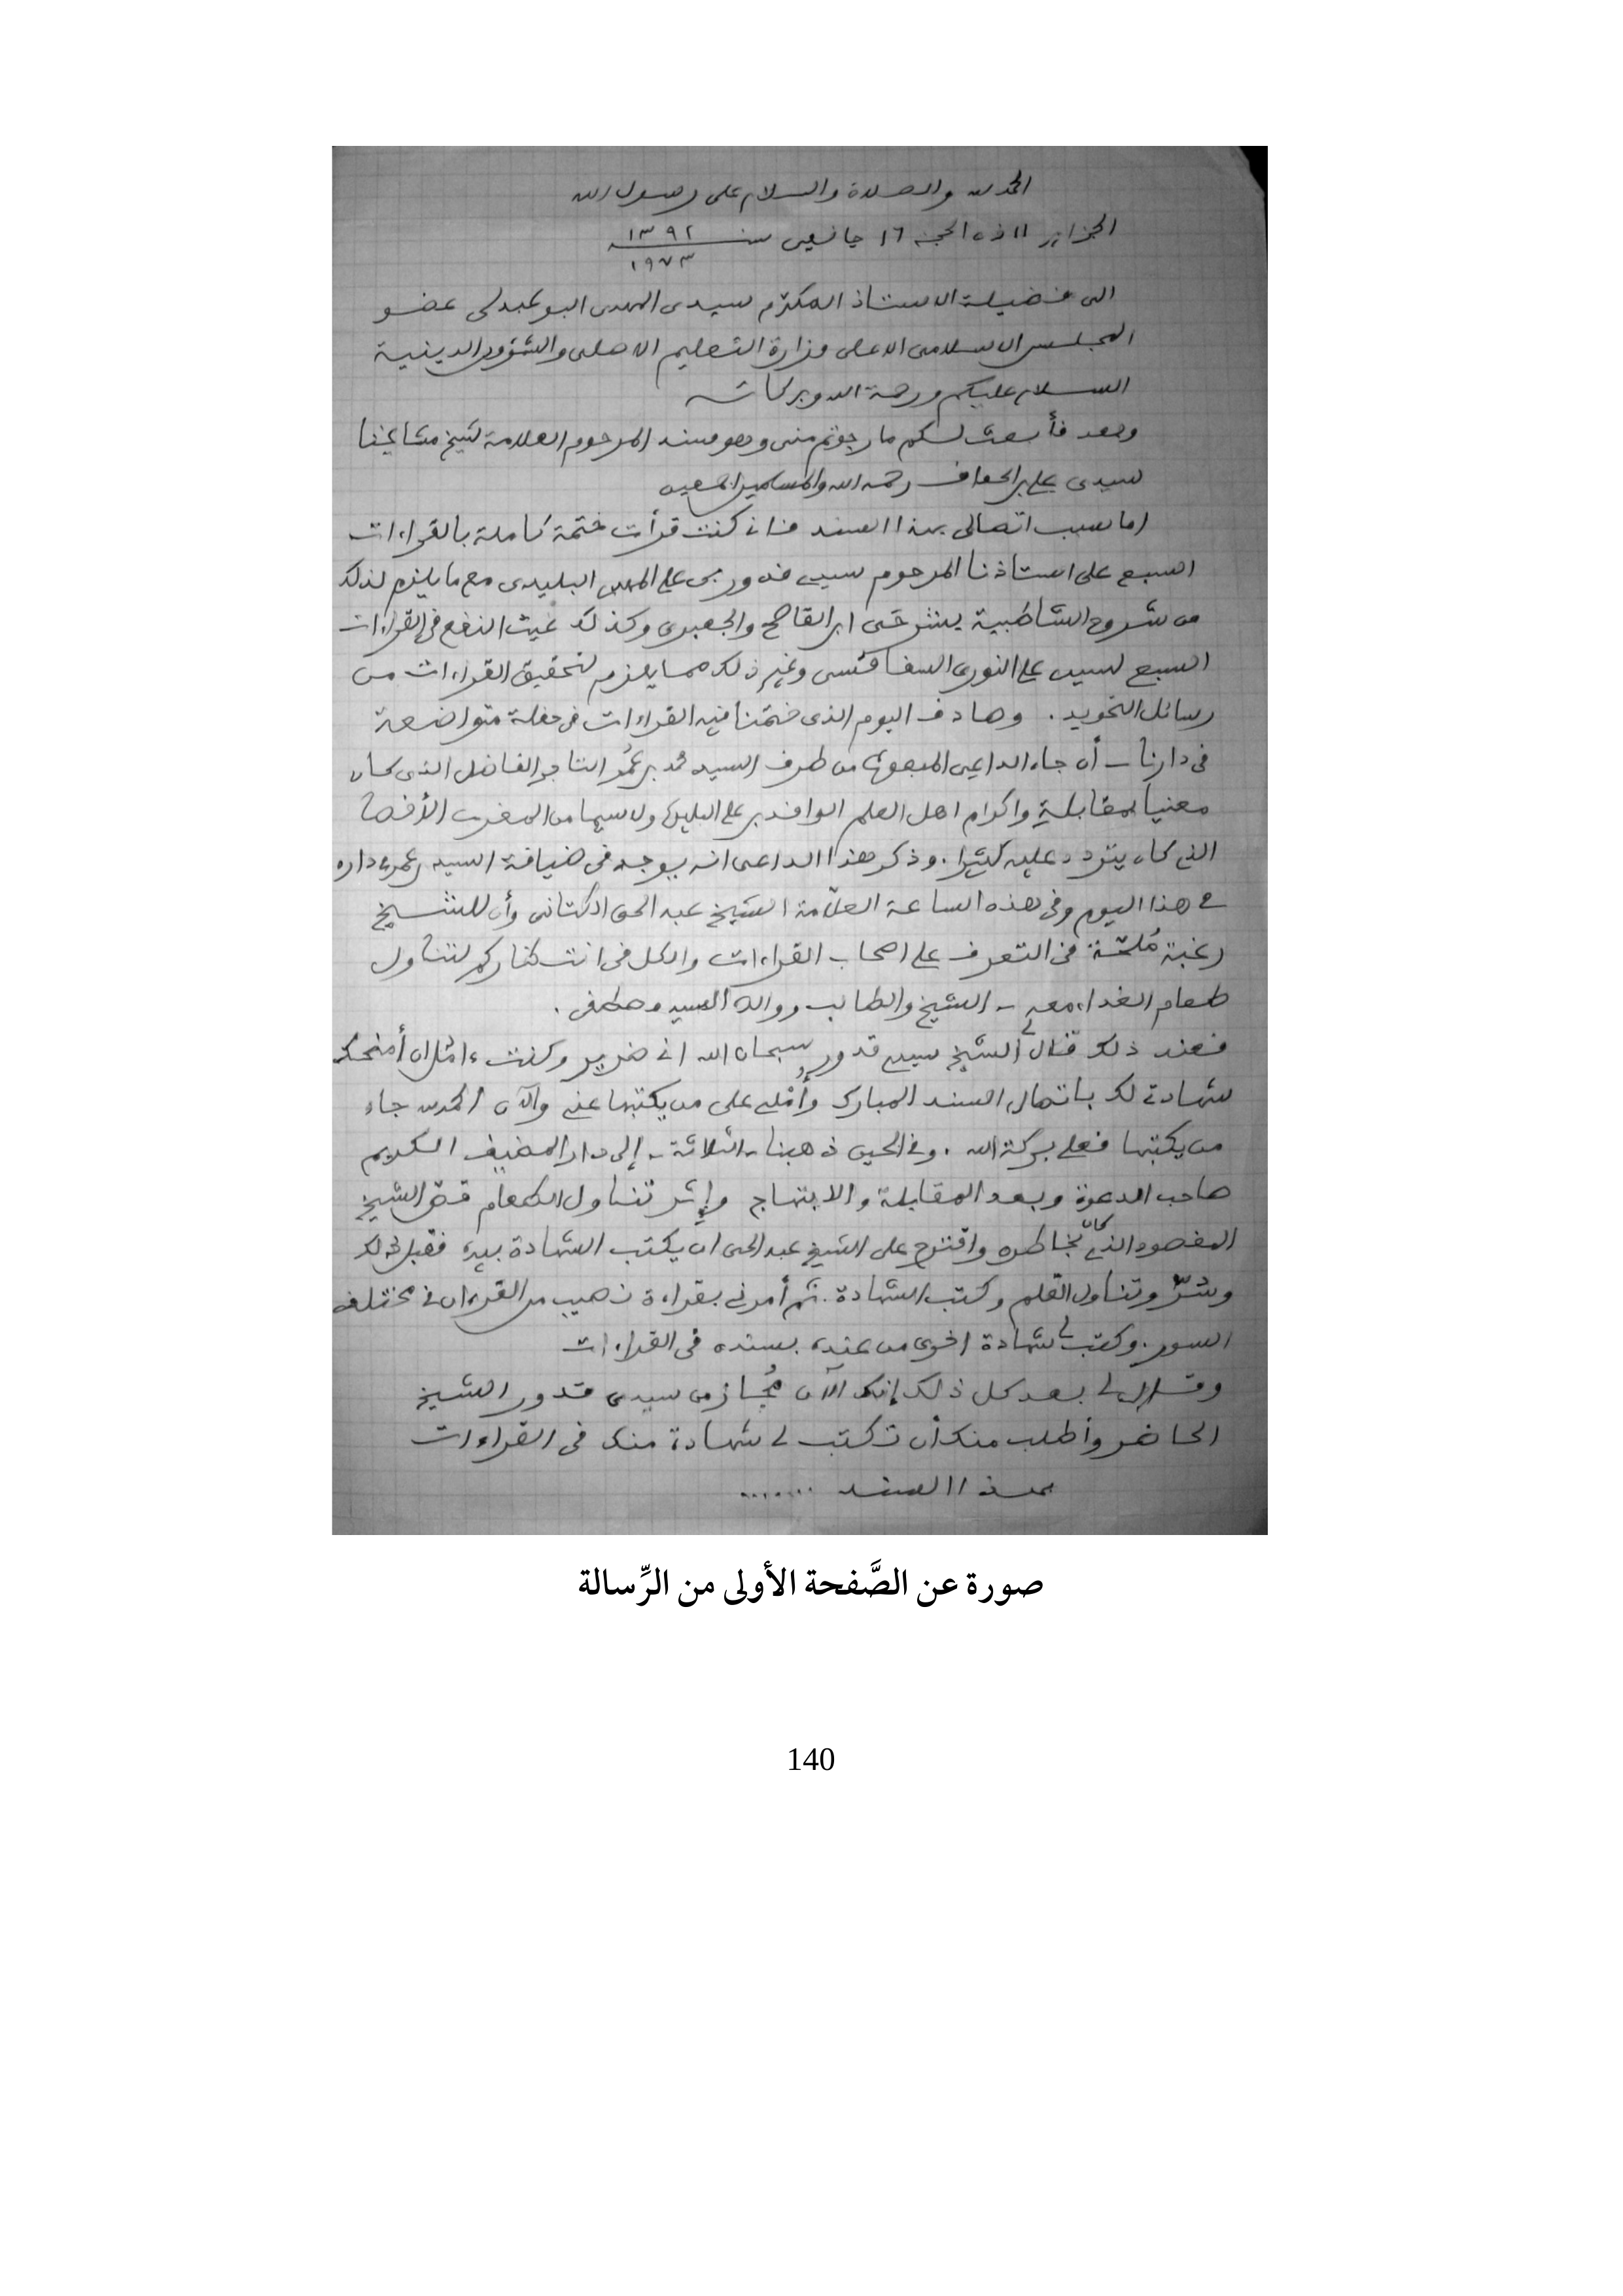 الحمد لله والصلاة والسلام على رسول الله
الجزائر ١١ ذي الحجة ١٦ جانفيي سنة ١٣٩٢
١٩٧٣
الى فضيلة الاستاذ المكرّم سيدى المهدى البوعبدلى عضو
المجلس الاسلامى الاعلى وزارة التعليم الاصلى والشؤون الدينية
السلام عليكم ورحمة الله وبركاته
وبعد فأبعث لكم ما رجوتم منى وهو سند المرحوم العلامة شيخ مشايخنا
سيدى على بن الحفاف رحمه الله والمسلمين اجمعين
اما سبب اتصالى بهذا السند فانى كنت قرأت ختمة كاملة بالقراءات
السبع على استاذنا المرحوم سيدى قدور بن على البليدى مع ما يلزم لذلك
من شروح الشاطبية بشرحَى ابن القاصح والجعبرى وكذلك غيث النفع فى القراءات
السبع لسيدى على النورى السفاقسى وغير ذلك مما يلزم لتحقيق القراءات من
رسائل التجويد . وصادف اليوم الذى ختمنا فيه القراءات فى حفلة متواضعة
فى دارنا - أن جاء الداعى المبعوث من طرف السيد محمد بن عمُر التاجر الفاضل الذى كان
معنيا بمقابلة واكرام اهل العلم الوافدين على البليدة ولا سيما من المغرب الأقصا
الذى كان يتردد عليه كثيرا . وذكر هذا الداعى انه يوجد فى ضيافة السيد بن عمر بداره
فى هذا اليوم وفى هذه الساعة العلّامة الشيخ عبد الحى الكتانى وأن للشيخ
رغبة مُلحّة فى التعرف على اصحاب القراءات والكل فى انتظاركم لتناول
طعام الغداء معه - الشيخ والطالب ووالده السيد مصطفى .
فعند ذلك قال لى الشيخ سيدى قدور سبحان الله انى ضرير وكنت ءاثل ان أمنحك
شهادة لك باتصال السند المبارك وأُملى على من يكتبها عنى والآن الحمد لله جاء
من يكتبها فعلى بركة الله . وفى الحين ذهبنا - الثلاثة - إلى دار المضيف الكريم
صاحب الدعوة وبعد المقابلة والابتهاج وإثر تناول الطعام قص الشيخ
المقصود الذى كان بخاطره واقترح على الشيخ عبد الحى ان يكتب الشهادة بيده فقبل ذلك
وسُرّ وتناول القلم وكتب الشهادة . ثم أمرنى بقراءة نصيب من القرءان فى مختلف
السور . وكتب لى شهادة اخرى من عنده بسنده فى القراءات
وقال لى بعد كل ذلك إنك الآن مُجاز من سيدى قدور الشيخ
الحاضر وأطلب منك أن تكتب لى شهادة منك فى القراءات
بهذا السند ........
صورة عن الصَّفحة الأولى من الرِّسالة
140